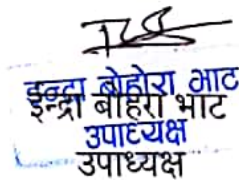 इन्द्रा बोहोरा भाट
इन्द्रा बोहरा भाट
उपाध्यक्ष
उपाध्यक्ष